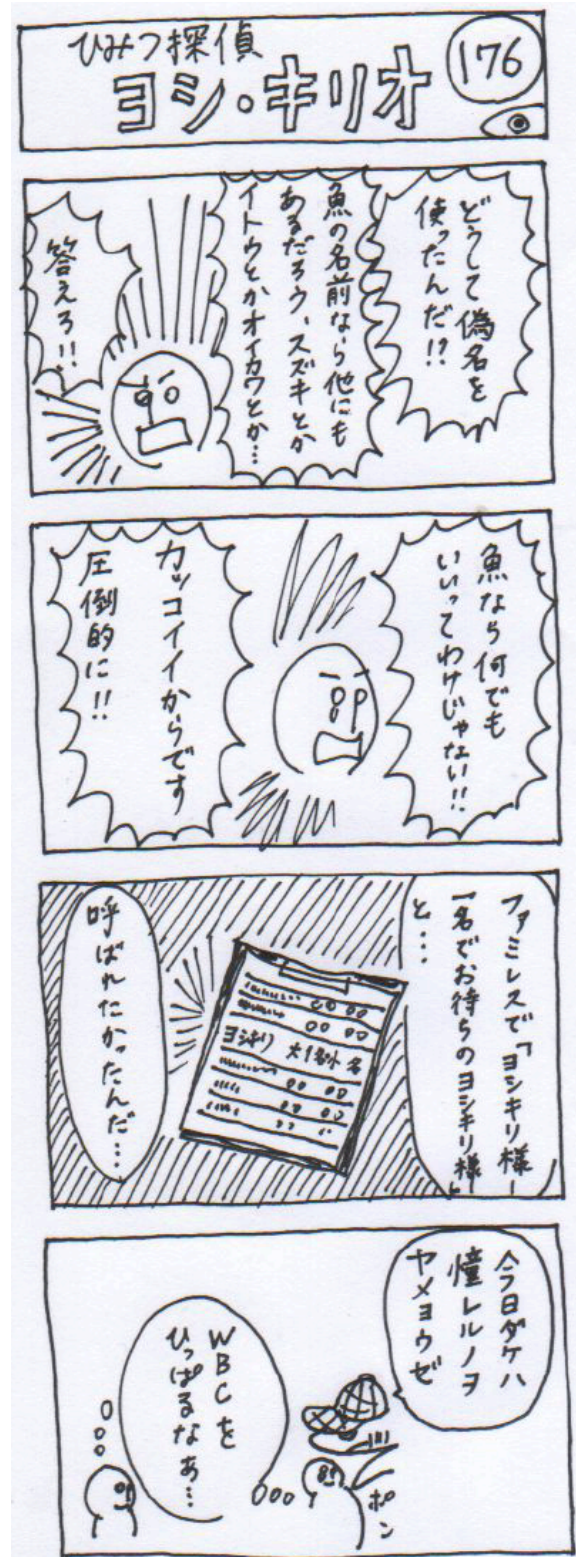 ひみつ探偵
ヨシ・キリオ
176
どうして偽名を
使ったんだ!?
魚の名前なら他にも
あるだろウ、スズキとか
イトウとかオイカワとか…
答えろ!!
魚なら何でも
いいってわけじゃない!!
カッコイイからです
圧倒的に!!
ファミレスで「ヨシキリ様ー
一名でお待ちのヨシキリ様ー」
と…
ヨシキリ 大1 名
呼ばれたかったんだ…
今日ダケハ
憧レルノヲ
ヤメヨウゼ
ポン
WBCを
ひっぱるなぁ…